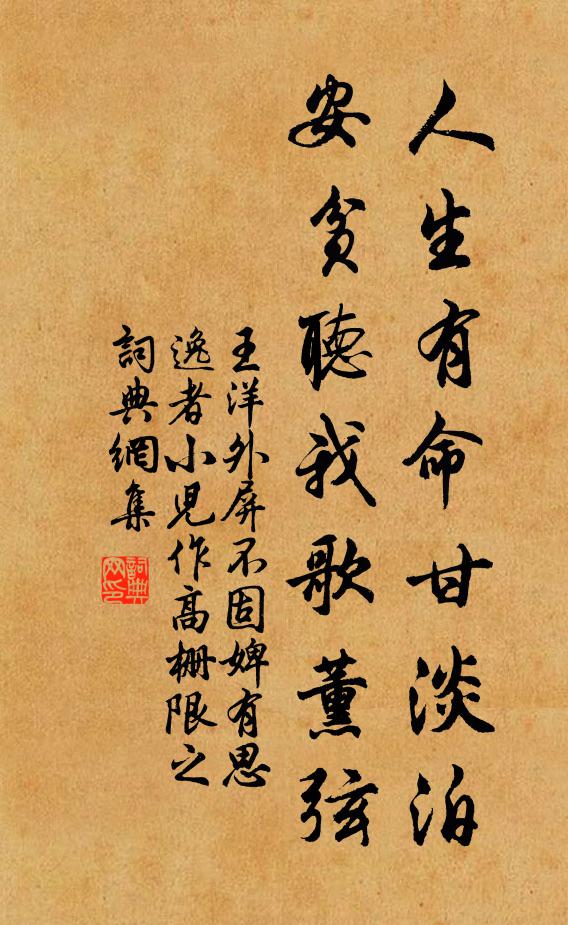 人生有命甘淡泊
安貧聽我歌薰弦
王洋外屏不固婢有思
逸者小兒作高柵限之
詞典網集
詞典
网印